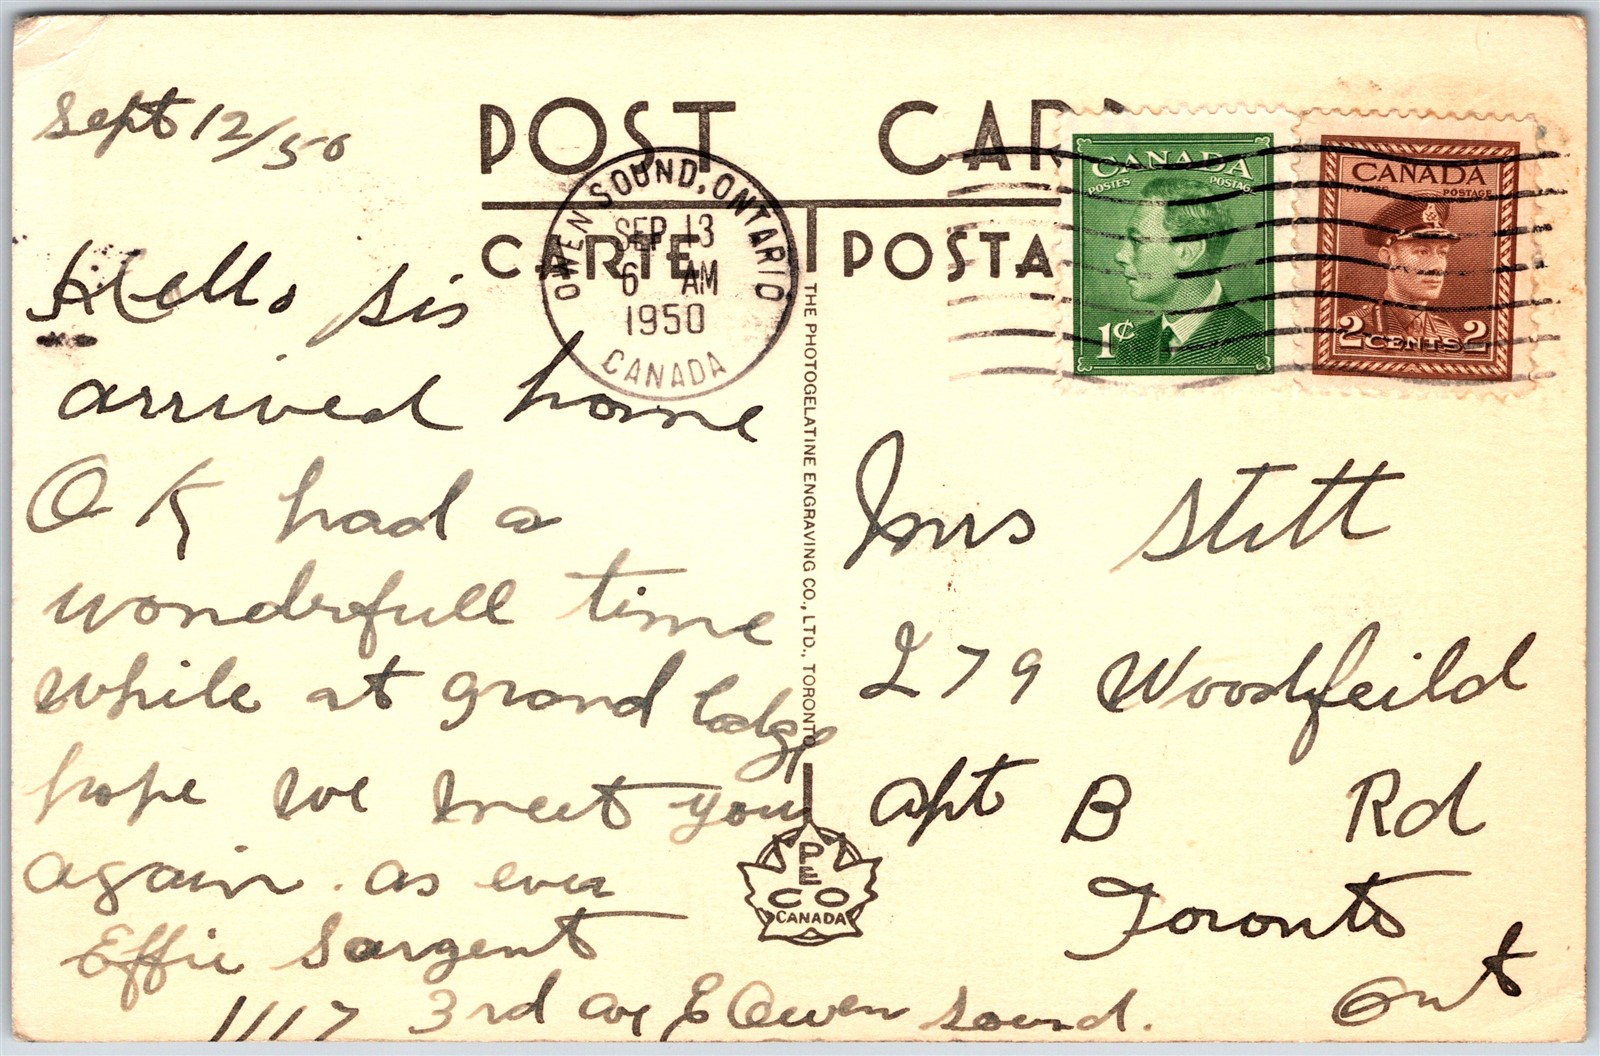 Sept 12/50
POST CAR
CARTE POSTA
OWEN SOUND, ONTARIO
SEP 13
6 AM
1950
CANADA
CANADA
POSTES POSTAG
1¢
CANADA
POSTES POSTAGE
2 CENTS 2
Hello sis
arrived home
OK had a
wonderfull time
while at grand lodge
hope we meet you
again. as ever
Effie Sargent
1117 3rd ave E Owen Sound.
THE PHOTOGELATINE ENGRAVING CO., LTD., TORONTO
PE
CO
CANADA
Mrs Stitt
279 Woodfeild
apt B Rd
Toronto
Ont